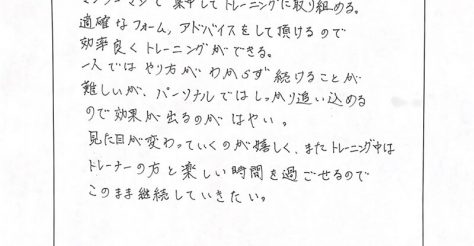 マンツーマンで 集中してトレーニングに取り組める。
適確なフォーム,アドバイスをして頂けるので
効率良くトレーニングができる。
一人では やり方が わからず 続けることが
難しいが、パーソナルではしっかり追い込める
ので効果が出るのが はやい。
見た目が変わっていくのが嬉しく、またトレーニング中は
トレーナーの方と楽しい時間を過ごせるので
このまま継続していきたい。